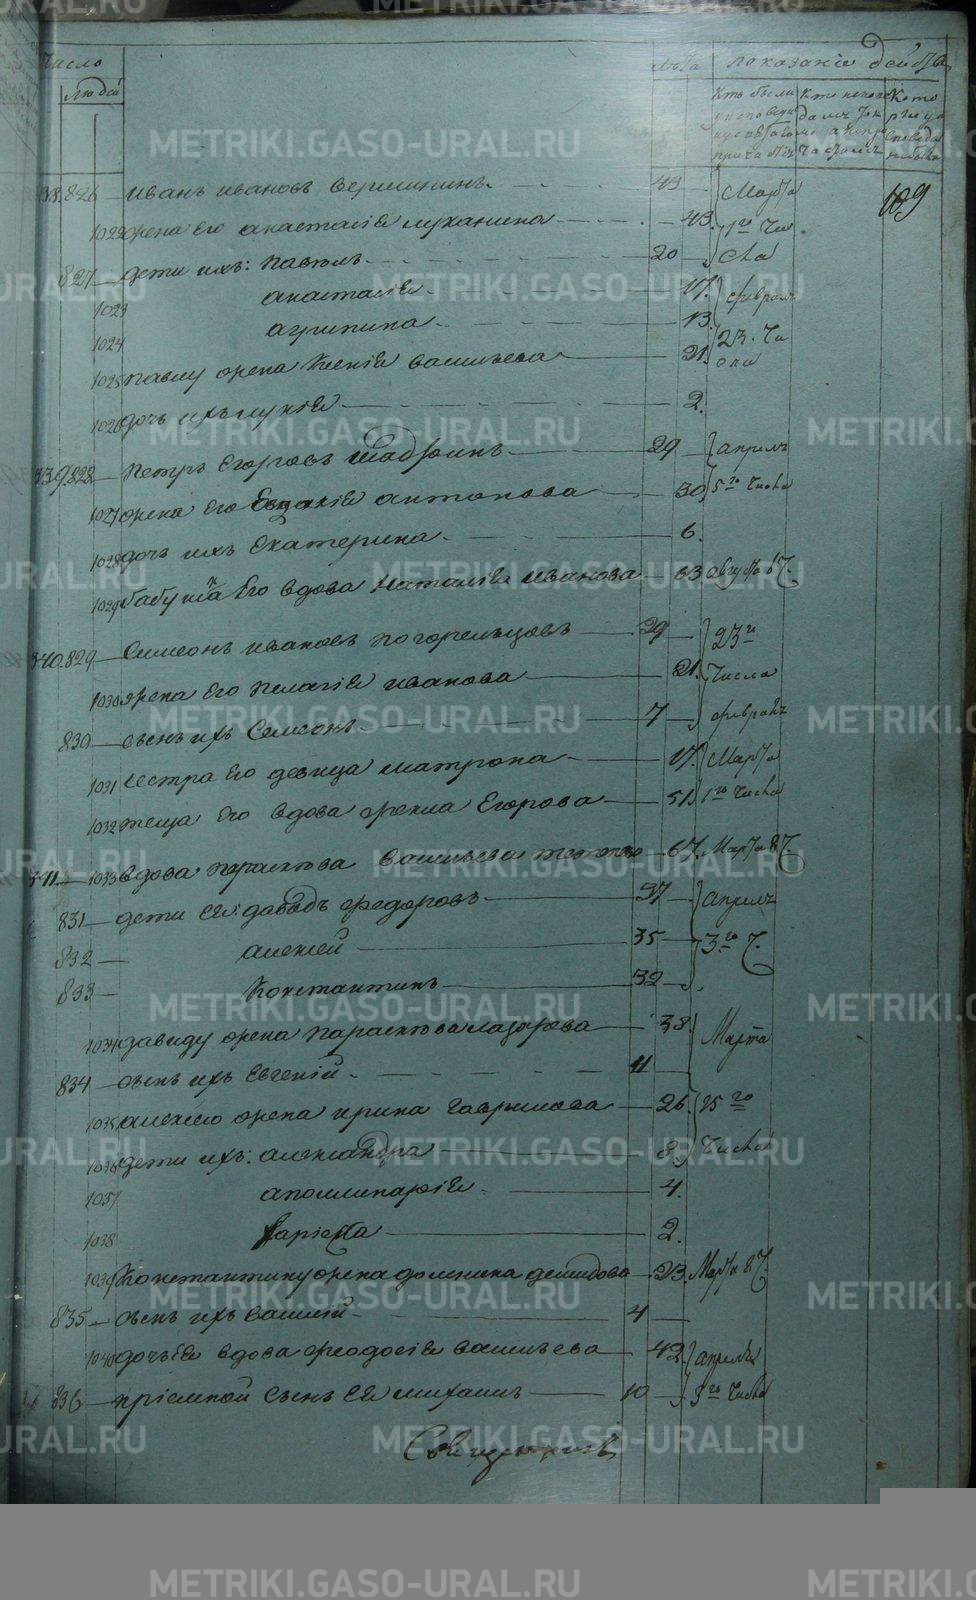 METRIKI.GASO-URAL.RU
Число
людей
Лѣта
показаніе действа
Кто были
у исповеди
38. 826 Иванъ Ивановъ Вершининъ 43 Марта
1022 жена Его Анастасія Луханина 43. 1го Чи
827 дети ихъ: Павелъ 20 сла
1023 Анастасія 17. Февраля
1024 Агрипина 13. 23. Чи
1025 Павлу жена Ксенія Васильева 21. сла
1026 дочь ихъ Лукія 2.
339. 828 Петръ Егоровъ Шадринъ 29 апреля
1027 жена Его Евдокія Антонова 30. 5го Числа
1028 дочь ихъ Екатерина 6.
1029 бабушка Его вдова Наталія Иванова 63. августа 6 Ч.
340. 829 Симеонъ Ивановъ Погорельцовъ 29 23го
1030 жена Его Пелагія Иванова 21. Числа
830 сынъ ихъ Семеонъ 7 февраля
1031 сестра Его девица Матрона 17. Марта
1032 теща Его вдова Фекла Егорова 51. 1го Числа
341. 1033 вдова Парасковья Васильева 67. Марта 8 Ч.
831 дети Ея: Давыдъ Федоровъ 37 апреля
832 Алексей 35 3го Ч.
833 Константинъ 32
1034 Давиду жена Парасковья Лазарева 38. Марта
834 сынъ ихъ Евгеній 11
1035 Алексею жена Ирина Гаврилова 26. 25го
1036 дети ихъ: Александра 8. Числа
1037 Аполлинарія 4.
1038 2.
1039 Константину жена Домника Демидова 23. Марта 8 Ч.
835 сынъ ихъ Василій 4
1040 дочь Ея вдова Феодосія Васильева 42. апреля
836 пріемной сынъ Ея Михаилъ 10 3го Числа
Священникъ
109